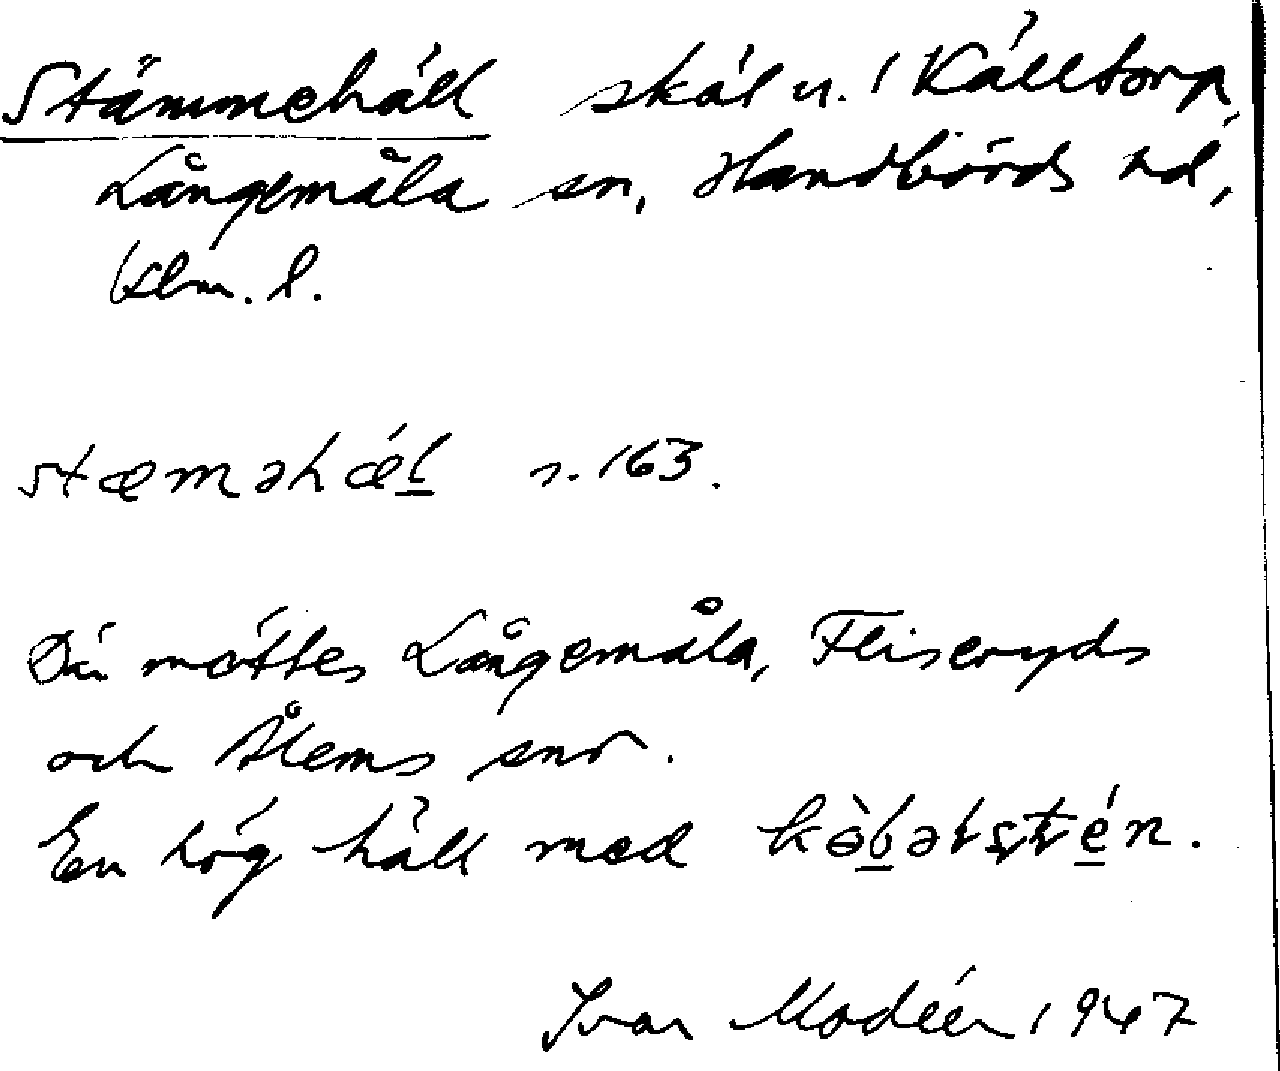 Stämmehäll skäl n. 1 Källtorp,
Långemåla sn, Handbörds hd,
Klm. l.
stæməhæl s. 163.
Där möttes Långemåla, Fliseryds
och Ålems snr.
En hög häll med
Ivar Modéer 1947